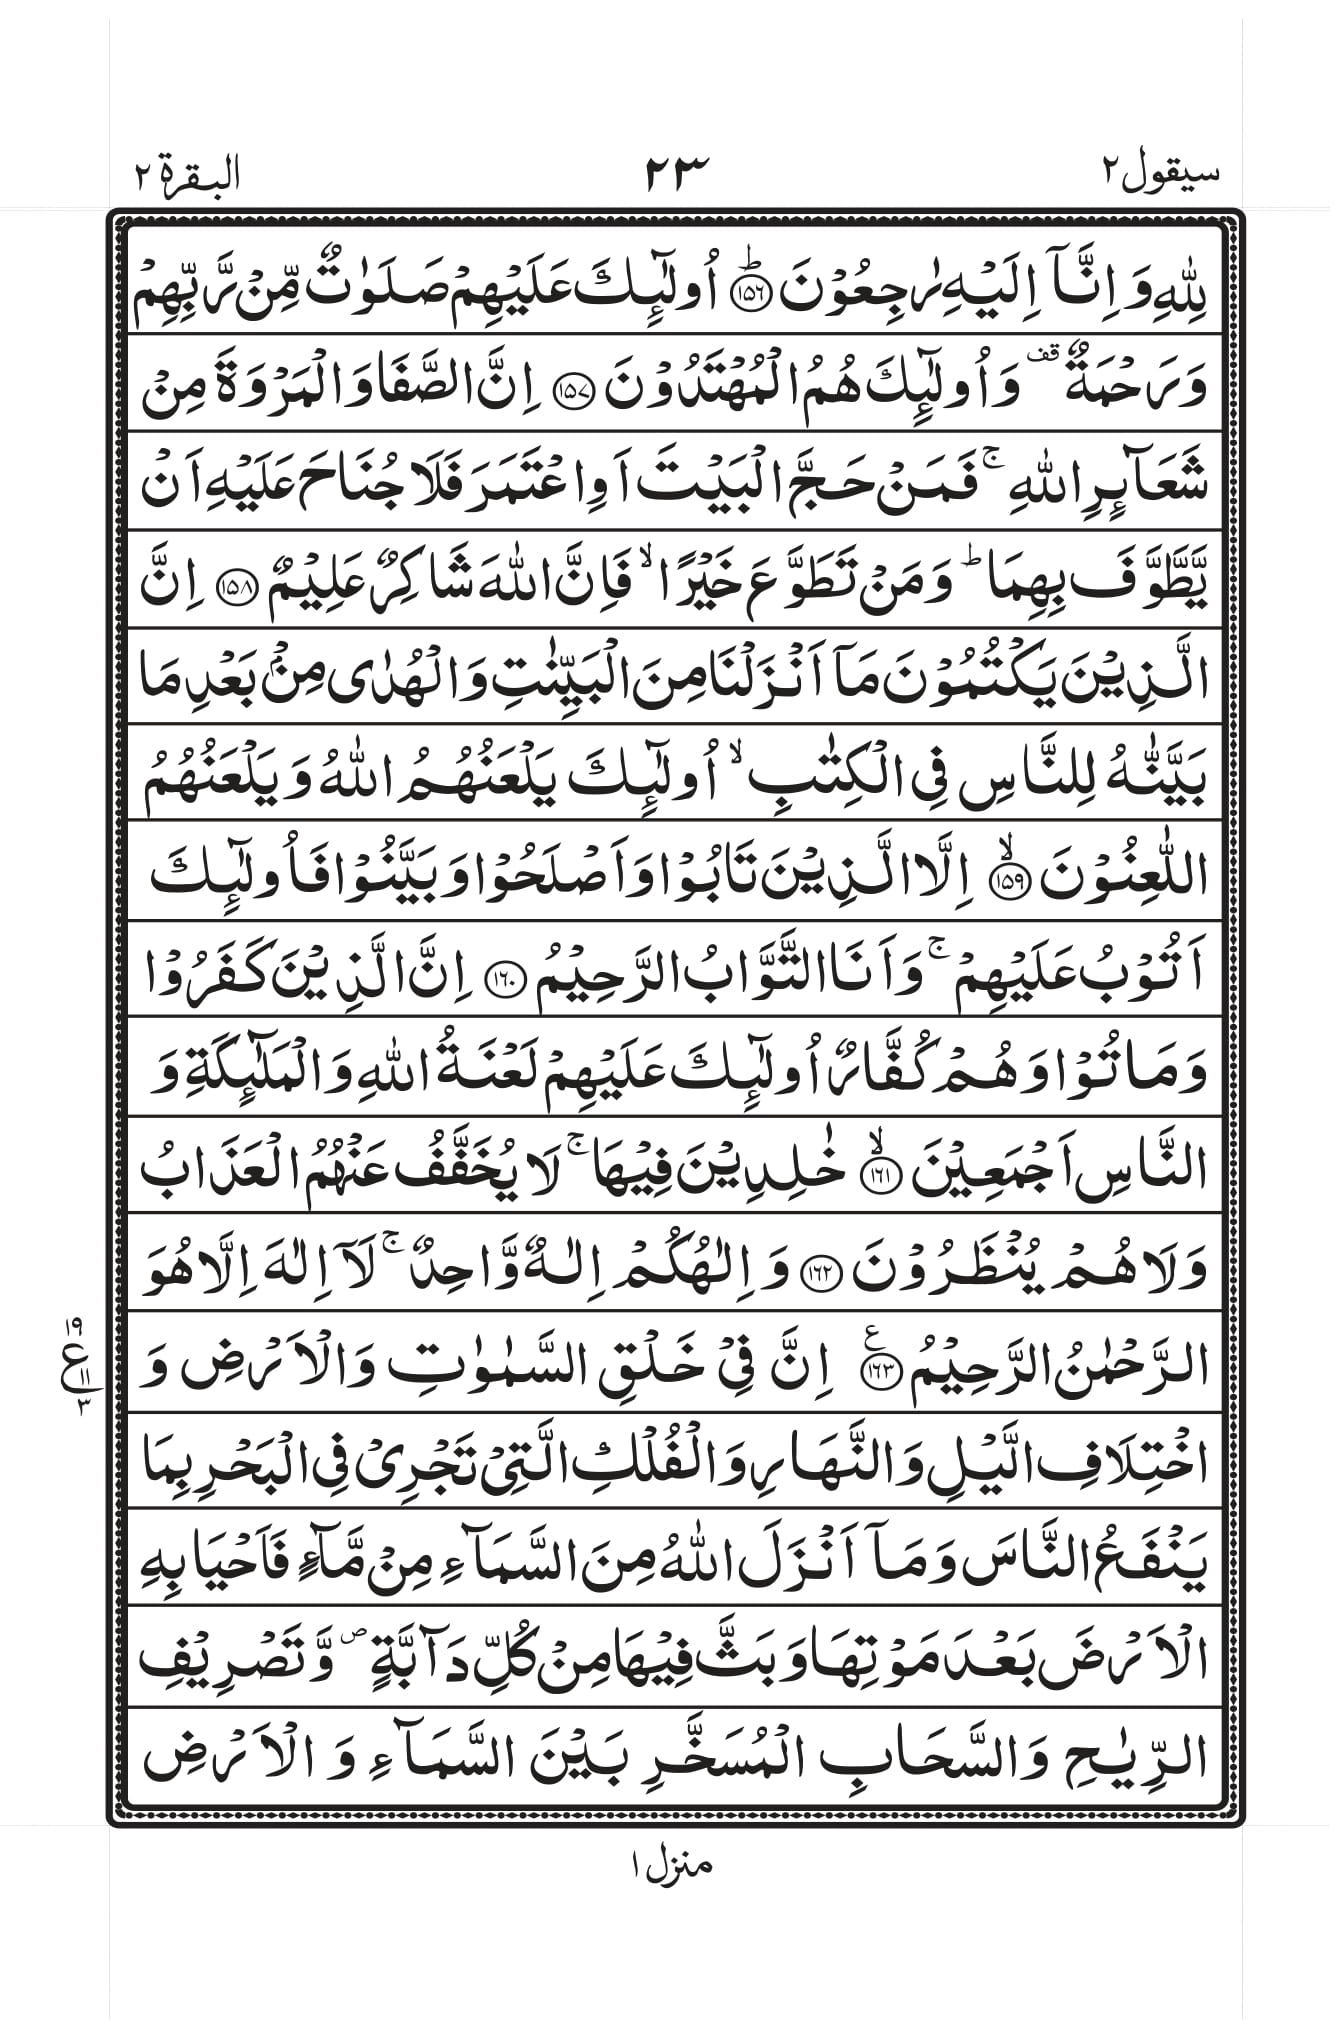 سيقول ٢
٢٣
البقرة ٢
لِلّٰهِ وَ اِنَّاۤ اِلَيْهِ رٰجِعُوْنَ ؕ﴿۱۵۶﴾ اُولٰٓئِكَ عَلَيْهِمْ صَلَوٰتٌ مِّنْ رَّبِّهِمْ
وَرَحْمَةٌ ۟ قف وَاُولٰٓئِكَ هُمُ الْمُهْتَدُوْنَ ﴿۱۵۷﴾ اِنَّ الصَّفَا وَالْمَرْوَةَ مِنْ
شَعَآئِرِ اللّٰهِ ۚ فَمَنْ حَجَّ الْبَيْتَ اَوِ اعْتَمَرَ فَلَا جُنَاحَ عَلَيْهِ اَنْ
يَّطَّوَّفَ بِهِمَا ؕ وَمَنْ تَطَوَّعَ خَيْرًا ۙ فَاِنَّ اللّٰهَ شَاكِرٌ عَلِيْمٌ ﴿۱۵۸﴾ اِنَّ
الَّذِيْنَ يَكْتُمُوْنَ مَاۤ اَنْزَلْنَا مِنَ الْبَيِّنٰتِ وَالْهُدٰى مِنْۢ بَعْدِ مَا
بَيَّنّٰهُ لِلنَّاسِ فِى الْكِتٰبِ ۙ اُولٰٓئِكَ يَلْعَنُهُمُ اللّٰهُ وَيَلْعَنُهُمُ
اللّٰعِنُوْنَ ۙ﴿۱۵۹﴾ اِلَّا الَّذِيْنَ تَابُوْا وَاَصْلَحُوْا وَبَيَّنُوْا فَاُولٰٓئِكَ
اَتُوْبُ عَلَيْهِمْ ۚ وَاَنَا التَّوَّابُ الرَّحِيْمُ ﴿۱۶۰﴾ اِنَّ الَّذِيْنَ كَفَرُوْا
وَمَاتُوْا وَهُمْ كُفَّارٌ اُولٰٓئِكَ عَلَيْهِمْ لَعْنَةُ اللّٰهِ وَالْمَلٰٓئِكَةِ وَ
النَّاسِ اَجْمَعِيْنَ ۙ﴿۱۶۱﴾ خٰلِدِيْنَ فِيْهَا ۚ لَا يُخَفَّفُ عَنْهُمُ الْعَذَابُ
وَلَا هُمْ يُنْظَرُوْنَ ﴿۱۶۲﴾ وَ اِلٰهُكُمْ اِلٰهٌ وَّاحِدٌ ۚ لَاۤ اِلٰهَ اِلَّا هُوَ
الرَّحْمٰنُ الرَّحِيْمُ ﴿۱۶۳﴾ ع اِنَّ فِىْ خَلْقِ السَّمٰوٰتِ وَالْاَرْضِ وَ
١٩
ع ١١
٣
اخْتِلَافِ الَّيْلِ وَالنَّهَارِ وَالْفُلْكِ الَّتِىْ تَجْرِىْ فِى الْبَحْرِ بِمَا
يَنْفَعُ النَّاسَ وَمَاۤ اَنْزَلَ اللّٰهُ مِنَ السَّمَآءِ مِنْ مَّآءٍ فَاَحْيَا بِهِ
الْاَرْضَ بَعْدَ مَوْتِهَا وَبَثَّ فِيْهَا مِنْ كُلِّ دَآبَّةٍ ص وَّتَصْرِيْفِ
الرِّيٰحِ وَالسَّحَابِ الْمُسَخَّرِ بَيْنَ السَّمَآءِ وَ الْاَرْضِ
منزل ١